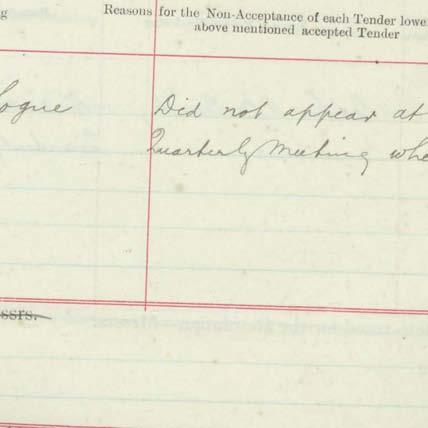 g Reasons for the Non-Acceptance of each Tender lowe
above mentioned accepted Tender
ogue Did not appear at
Quarterly Meeting whe
ssrs.